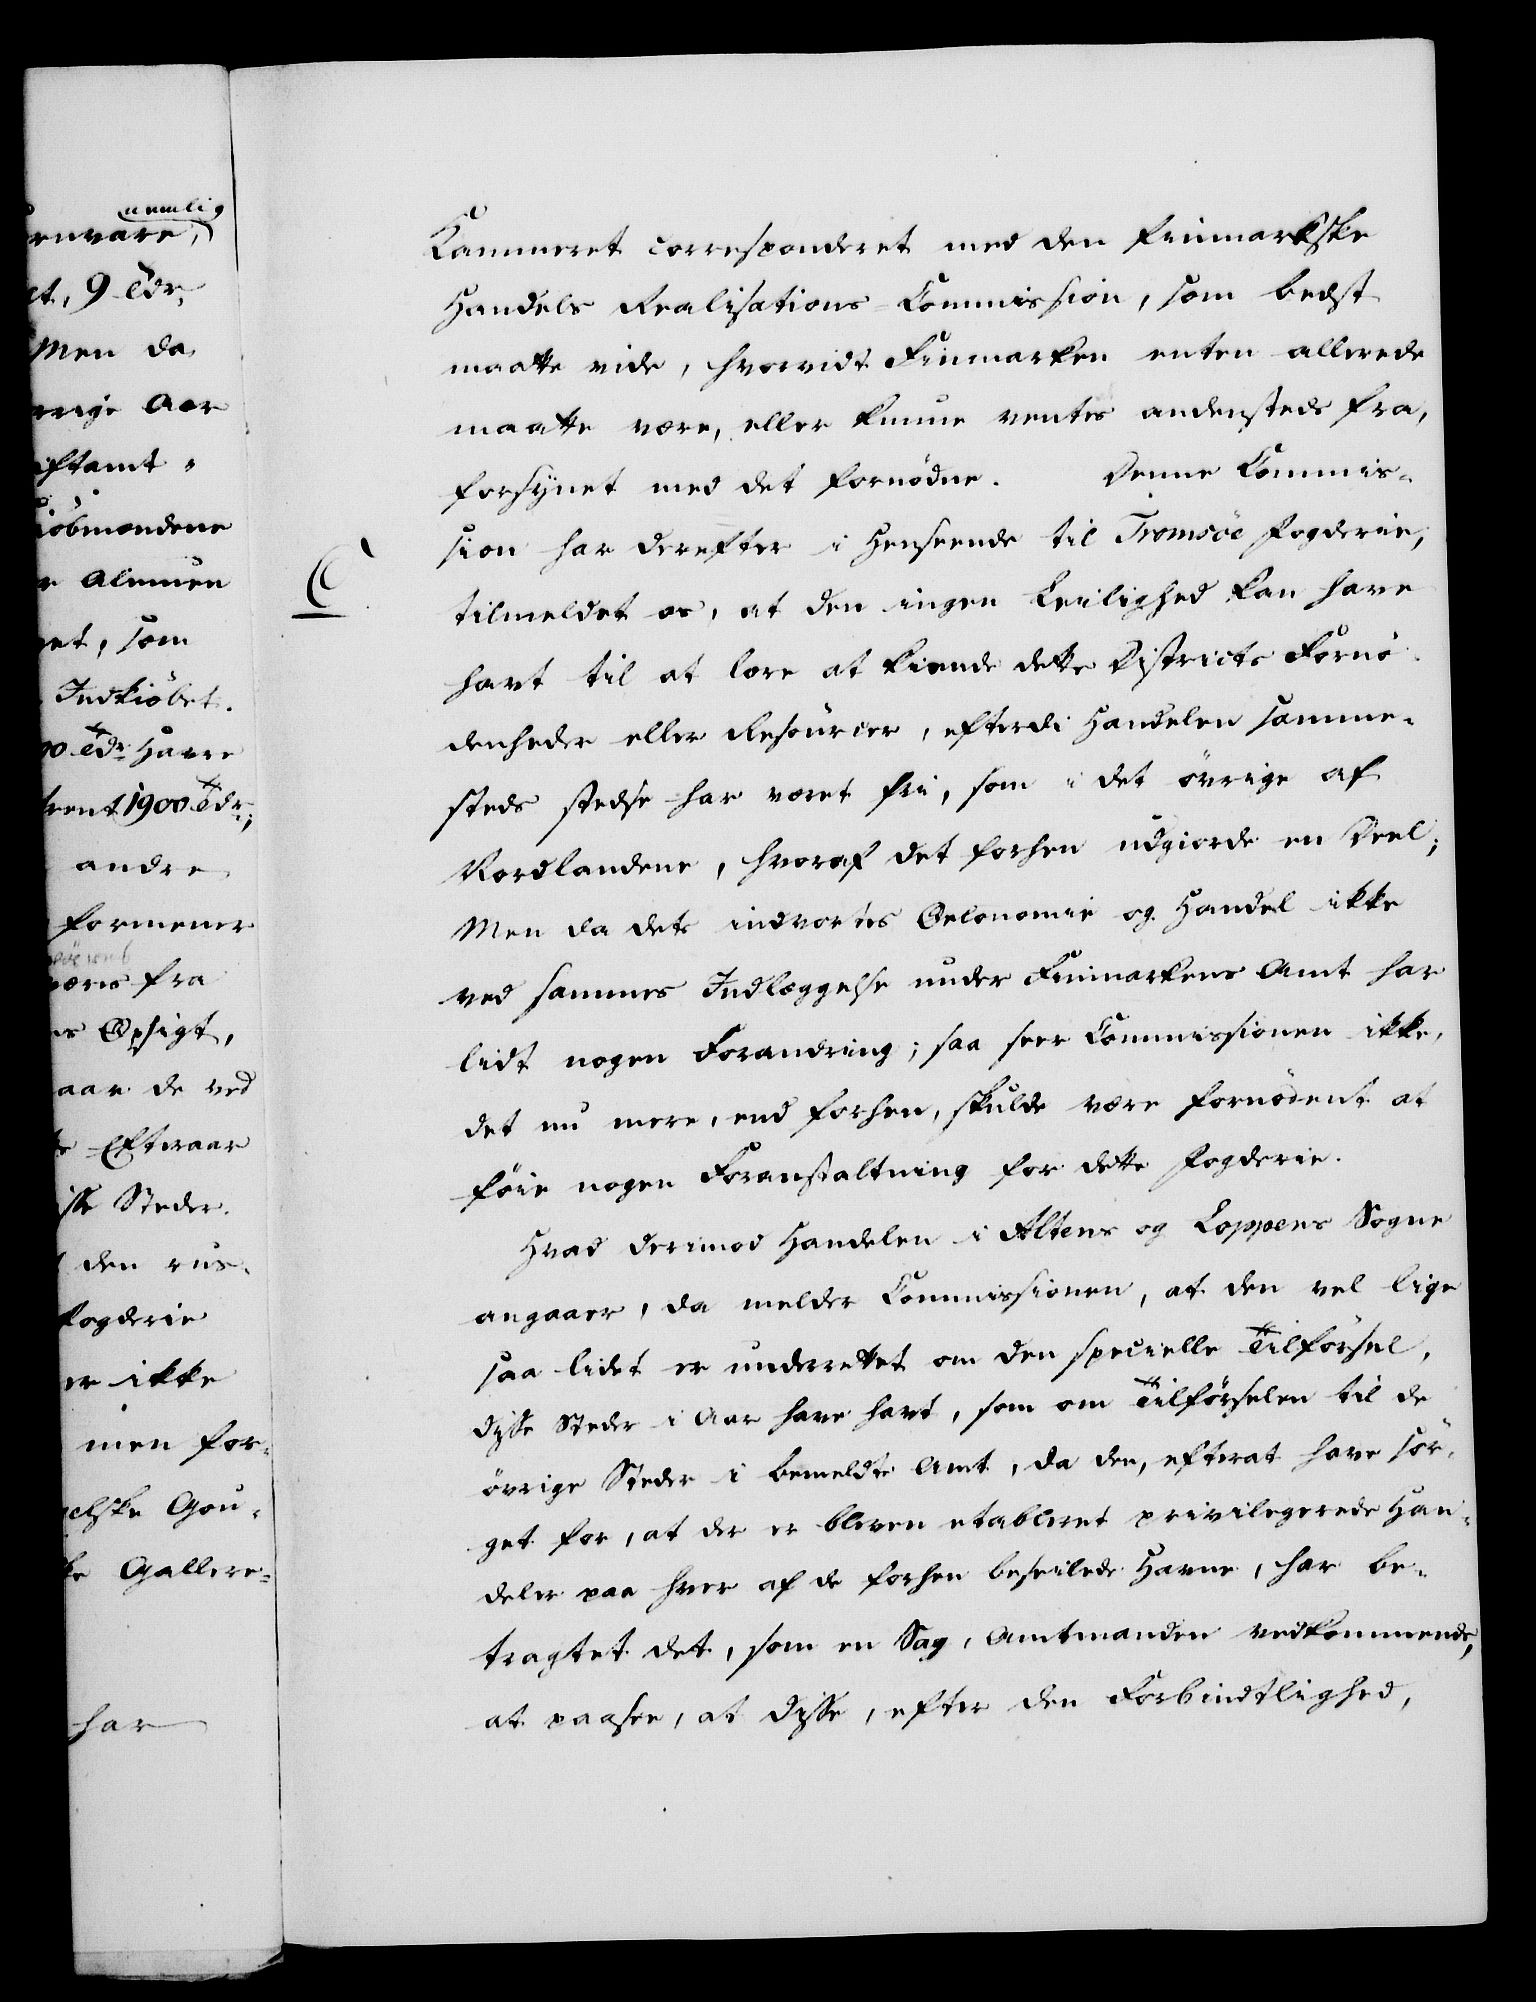 nemlig
renvare,
et, 9 Tdr.
Men da
rrige Aar
iftamt-
iöbmændene
r Alenuen
et, som
Indkiöbet.
00 Tdr Havre
trent 1900 Tdr;
andre
formener
væris fra
s Opsigt,
aar de ved
Efteraar
isse Steder.
den rus-
Fogderie
er ikke
men for-
elske Gou-
ke Gallere-
har
Kammeret correspondéret med den finmarkske
Handels Realisations-Commission, som bedst
maatte vide, hvorvidt Finmarken enten allerede
maatte være, eller kunne ventes andensteds fra,
forsÿnet med det fornödne. Denne Commis-
sion har derefter i Henseende til Tromsöe Fogderie,
C.
tilmeldet os, at den ingen Leilighed kan have
havt til at lære at kiende dette Districts Fornö-
denheder eller Resourcer, efterdi Handelen samme-
steds stedse har været fri, som i det övrige af
Nordlandene, hvoraf det forhen udgiorde en Deel;
Men da dets indvortes Oeconomie og Handel ikke
ved sammes Indlæggelse under Finmarkens Amt har
lidt nogen Forandring; saa seer Commissionen ikke,
det nu mere, end forhen, skulde være fornödent at
föie nogen Foranstaltning for dette Fogderie.
Hvad derimod Handelen i Altens og Loppens Sogne
angaaer, da melder Commissionen, at den vel lige
saa lidet er underrettet om den specielle Tilförsel,
disse Steder i Aar have havt, som om Tilförselen til de
övrige Steder i bemeldte Amt, da den, efterat have sör-
get for, at der er bleven etableret privilegerede Han-
deler paa hver af de forhen beseilede Havne, har be-
tragtet det, som en Sag, Amtmanden vedkommende,
at paasee, at disse, efter den Forbindtlighed,